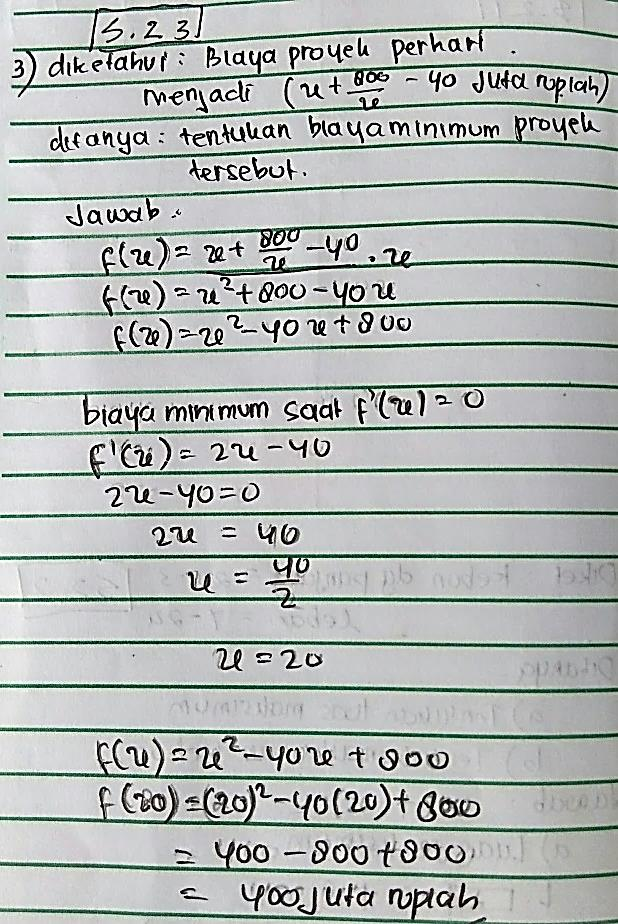 S.23
3) diketahui : Biaya proyek perhari
menjadi (x + 800/x - 40 Juta rupiah)
ditanya : tentukan biaya minimum proyek
tersebut.
Jawab :
f(x) = x + 800/x - 40 . x
f(x) = x² + 800 - 40x
f(x) = x² - 40x + 800
biaya minimum saat f'(x) = 0
f'(x) = 2x - 40
2x - 40 = 0
2x = 40
x = 40/2
x = 20
f(x) = x² - 40x + 800
f(20) = (20)² - 40(20) + 800
= 400 - 800 + 800
= 400 Juta rupiah